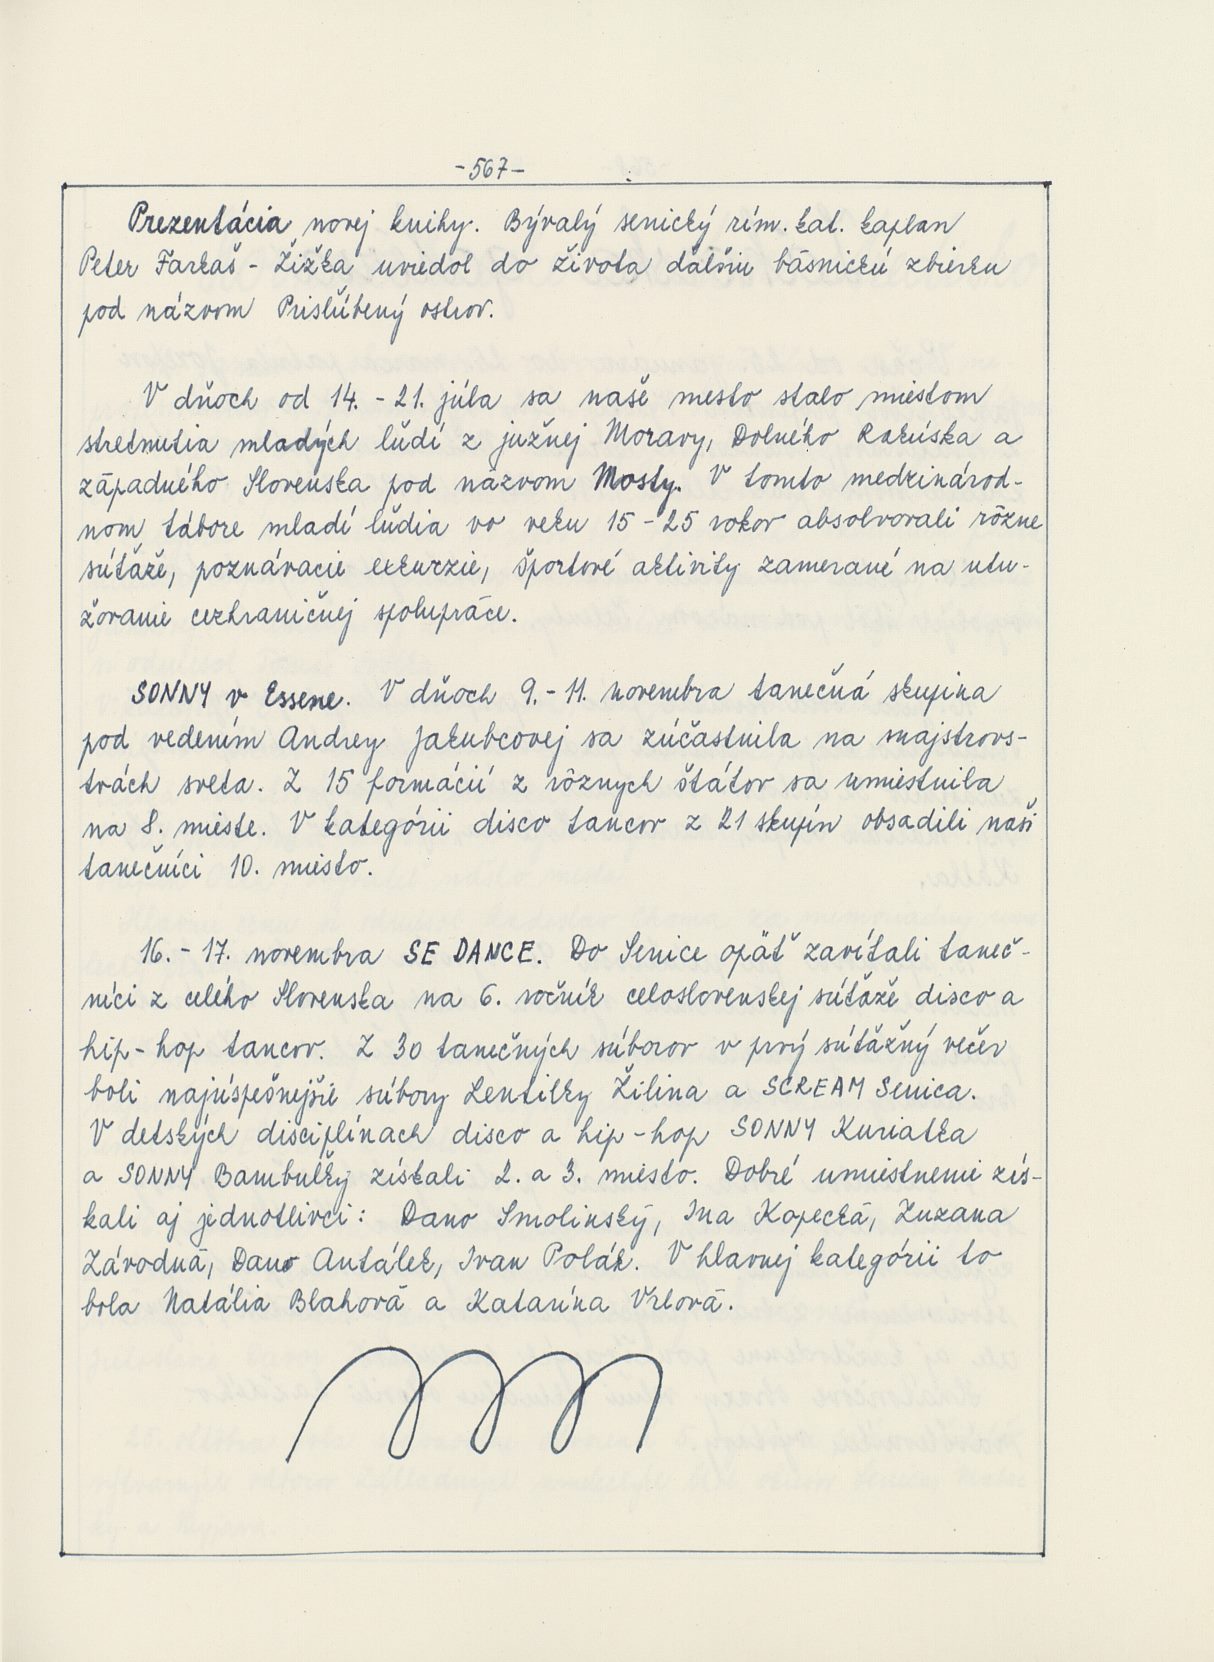 -567-
Prezentácia novej knihy. Bývalý senický rím. kat. kaplan
Peter Farkaš - Žižka uviedol do života ďalšiu básnickú zbierku
pod názvom Prisľúbený ostrov.
V dňoch od 14. - 21. júla sa naše mesto stalo miestom
stretnutia mladých ľudí z južnej Moravy, Dolného Rakúska a
západného Slovenska pod názvom Mosty. V tomto medzinárod-
nom tábore mladí ľudia vo veku 15 - 25 rokov absolvovali rôzne
súťaže, poznávacie exkurzie, športové aktivity zamerané na utu-
žovanie cezhraničnej spolupráce.
SONNY v Essene. V dňoch 9. - 11. novembra tanečná skupina
pod vedením Andrey Jakubcovej sa zúčastnila na majstrovs-
tvách sveta. Z 15 formácií z rôznych štátov sa umiestnila
na 8. mieste. V kategórii disco tancov z 21 skupín obsadili naši
tanečníci 10. miesto.
16. - 17. novembra SE DANCE. Do Senice opäť zavítali taneč-
níci z celého Slovenska na 6. ročník celoslovenskej súťaže disco a
hip - hop tancov. Z 30 tanečných súborov v prvý súťažný večer
boli najúspešnejšie súbory Lentilky Žilina a SCREAM Senica.
V detských disciplínach disco a hip - hop SONNY Kuriatka
a SONNY Bambuľky získali 2. a 3. miesto. Dobré umiestnenie zís-
kali aj jednotlivci: Dano Smolinský, Ina Kopecká, Zuzana
Závodná, Dano Antálek, Ivan Polák. V hlavnej kategórii to
bola Natália Blahová a Katarína Vrlová.